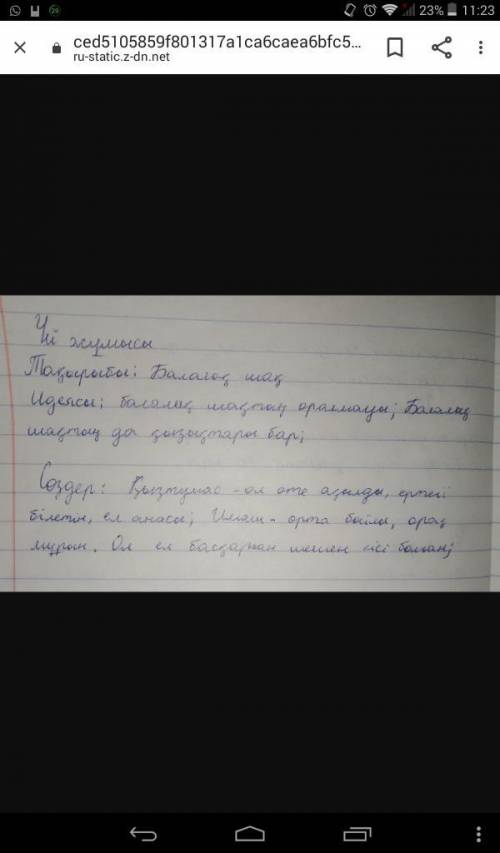 23% 11:23
ced5105859f801317a1ca6caea6bfc5...
ru-static.z-dn.net
Үй жұмысы
Тақырыбы: Балалық шақ
Идеясы: балалық шақтың оралмауы; Балалық
шақтың да қызықтары бар;
Сөздер: Қызтумас - ол өте ақылды, ертегі
білетін, ел анасы; Имаш - орта бойлы,
мұрын. Ол ел басқарған шешен кісі болған;